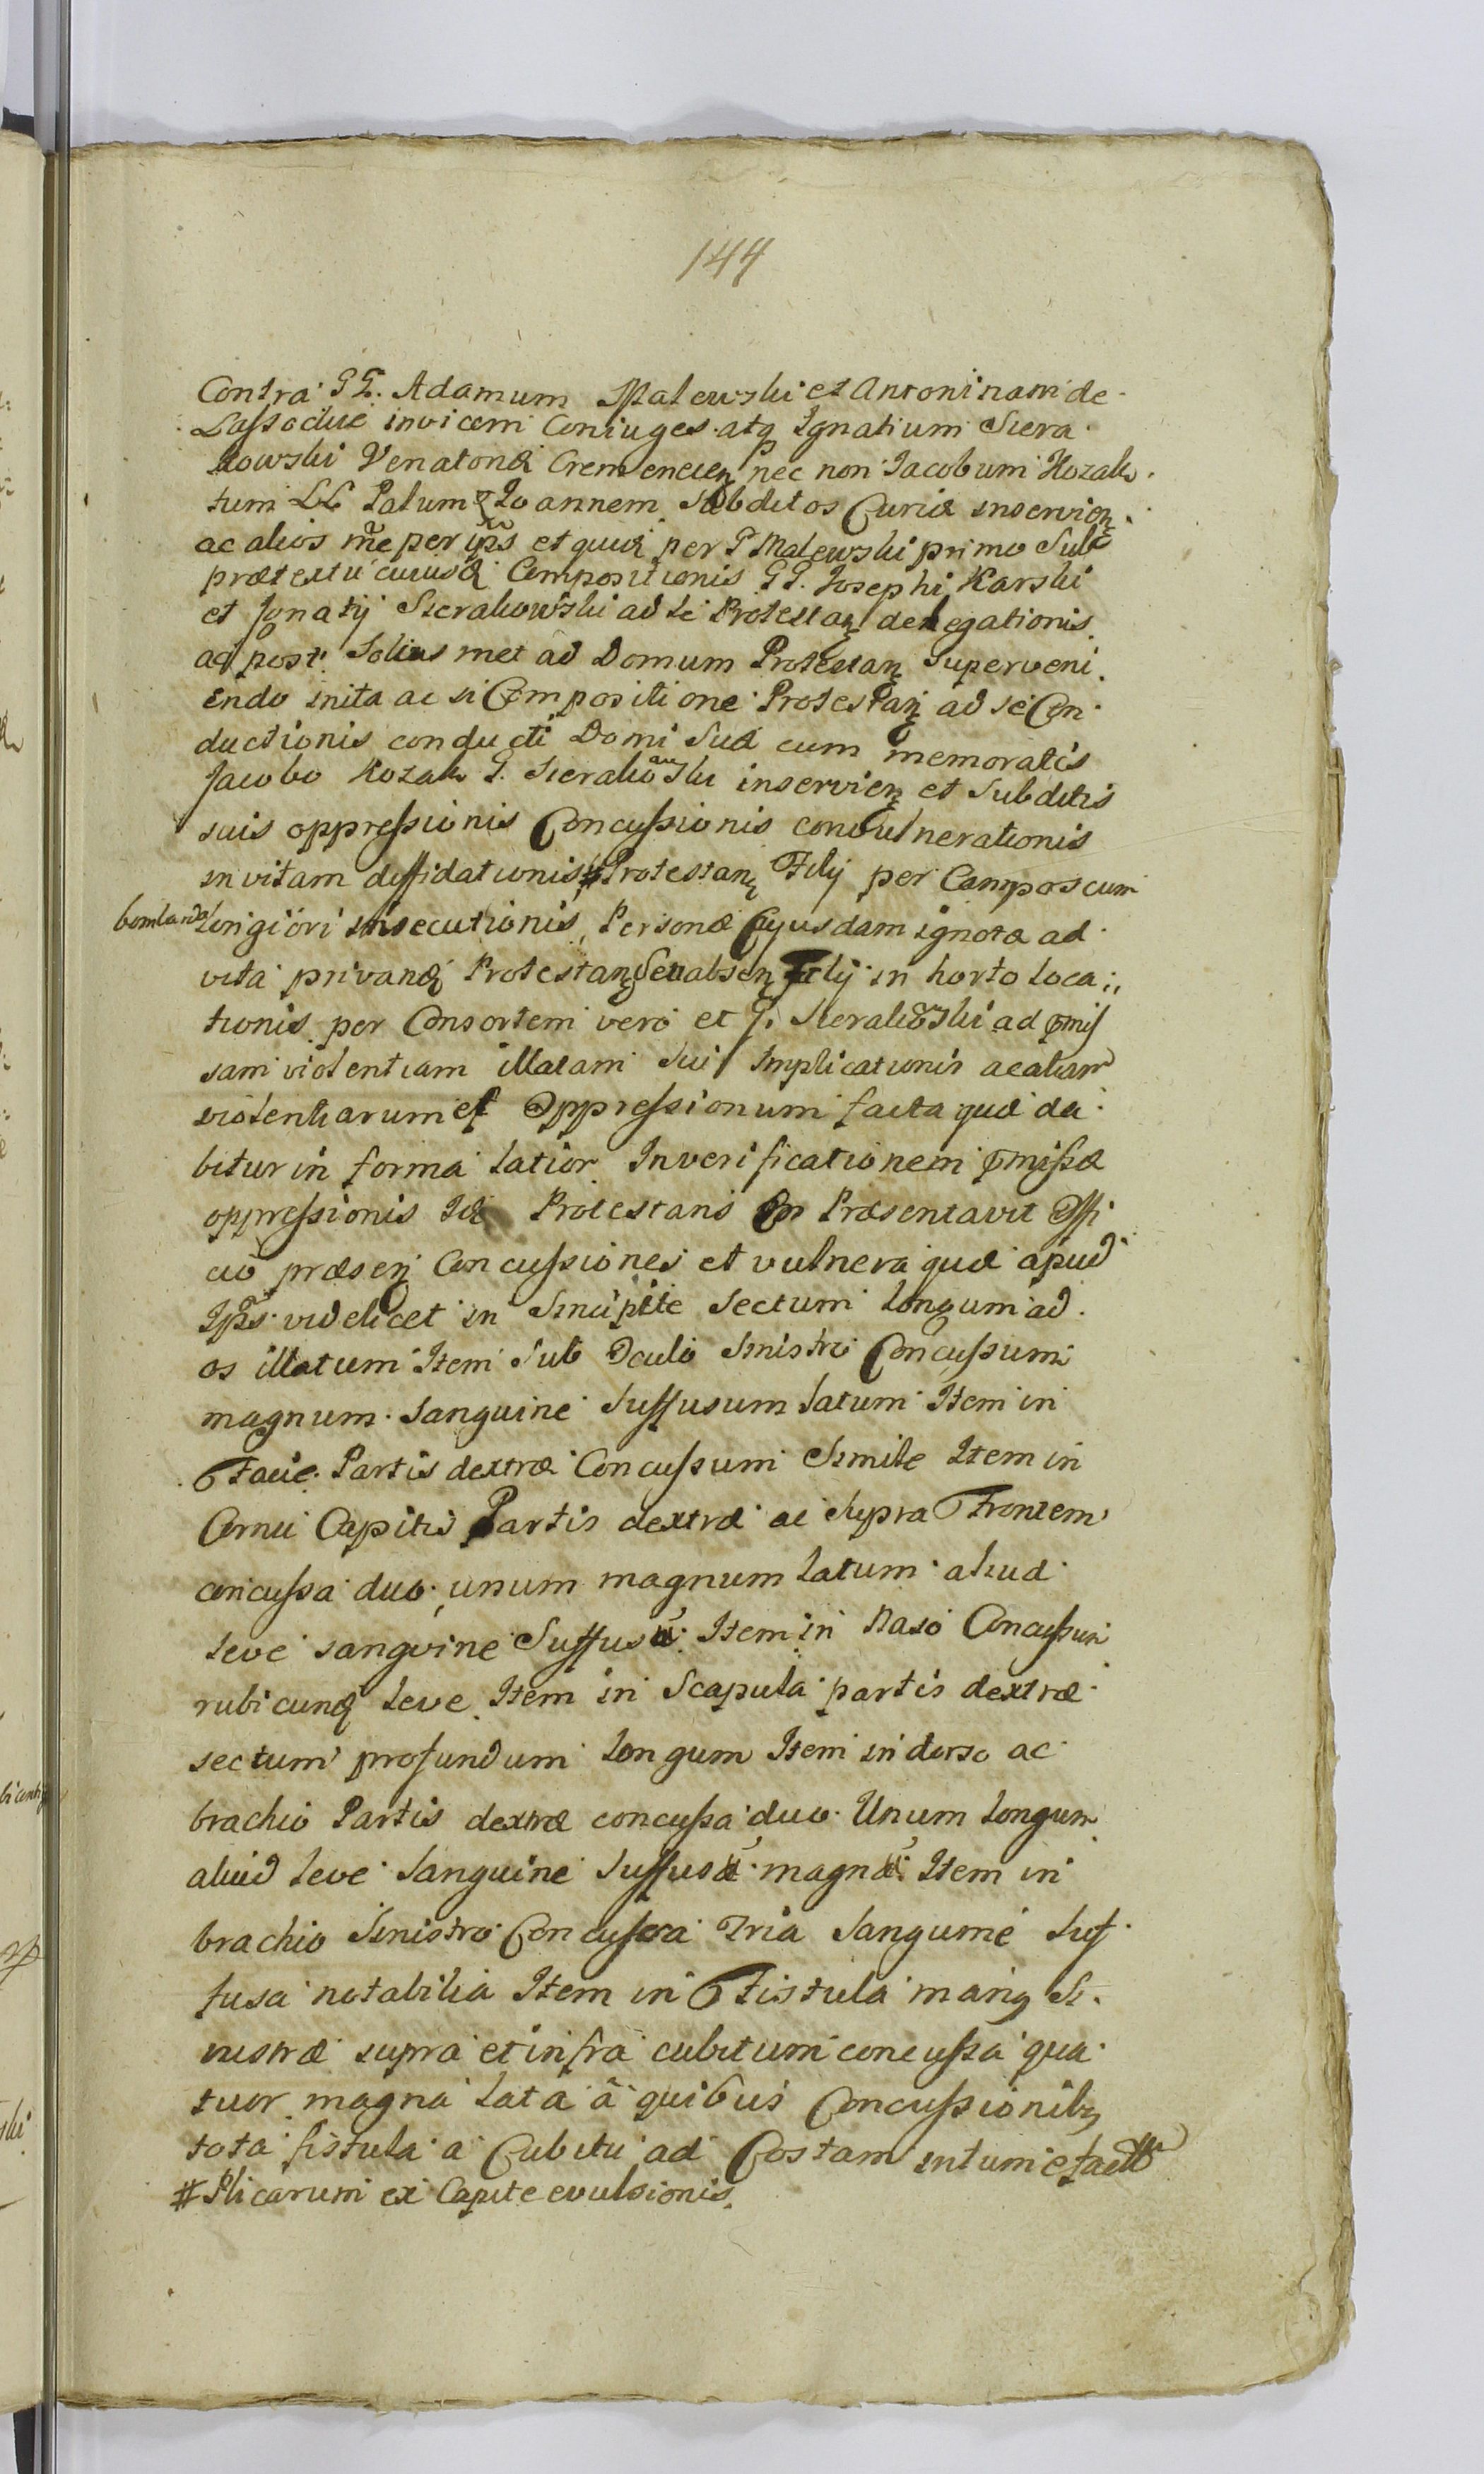 144
Contra GG. Adamum Malewski et Antoninam de
Lassockie invicem Coniuges atq Ignatium Siera
kowski Venatorem Cremenecen nec non Jacobum Kozak
tum LL Palum & Joannem Subditos Curiæ inservien
ac alios mẽ per ipsos et quid per G Malewski primo Sub
prætextu cuiusd Compositionis GG. Josephi Karski
et Ignatij Sierakowski ad se Protestan delegationis
ac post Solius met ad Domum Protestan Superveni
endo inita ac si Compositione Protestan ad se Con
ductionis conducti Domi Suæ cum memoratis
Jacobo Kozak G. Sierakowski inservien et Subditis
suis oppressionis Concussionis convulnerationis
in vitam diffidationis # Protestan Filij per Campos cum
bombarda longiori insecutionis, Personæ Cujusdam ignotæ ad
vita privand Protestan Seu absen Filij in horto loca
tionis per Consortem vero et G. Sierakowski ad p̃mis
sam violentiam illatam Sui Implicationis ac aliam
violentiarum et Oppressionum facta quæ da
bitur in forma latior In verificationem p̃missæ
oppressionis Id Protestans Præsentavit Offi
cio præsen Concussiones et vulnera quæ apud
Ips videlicet in Sincipite Sectum longum ad
os illatum Item Sub Oculo Sinistro Concussum
magnum Sanguine Suffusum latum Item in
Facie Partis dextræ Concussum Simile Item in
Cornu Capitis Partis dextræ ac Supra Frontem
concussa duo unum magnum latum aliud
leve sangvine Suffusũ Item in Naso Concussum
rubicund leve Item in Scapula partis dextræ
sectum profundum longum Item in dorso ac
brachio Partis dextræ concussa duo Unum longum
aliud leve Sanguine Suffusũ magnũ Item in
brachio Sinistro Concussa Tria Sanguine Suf
fusa notabilia Item in Fistula manq Si
nistræ supra et infra cubitum concussa qua
tuor magna lata a quibus Concussionibq
tota fistula a Cubitu ad Costam intumefacta
# Plicarum ex Capite evulsionis